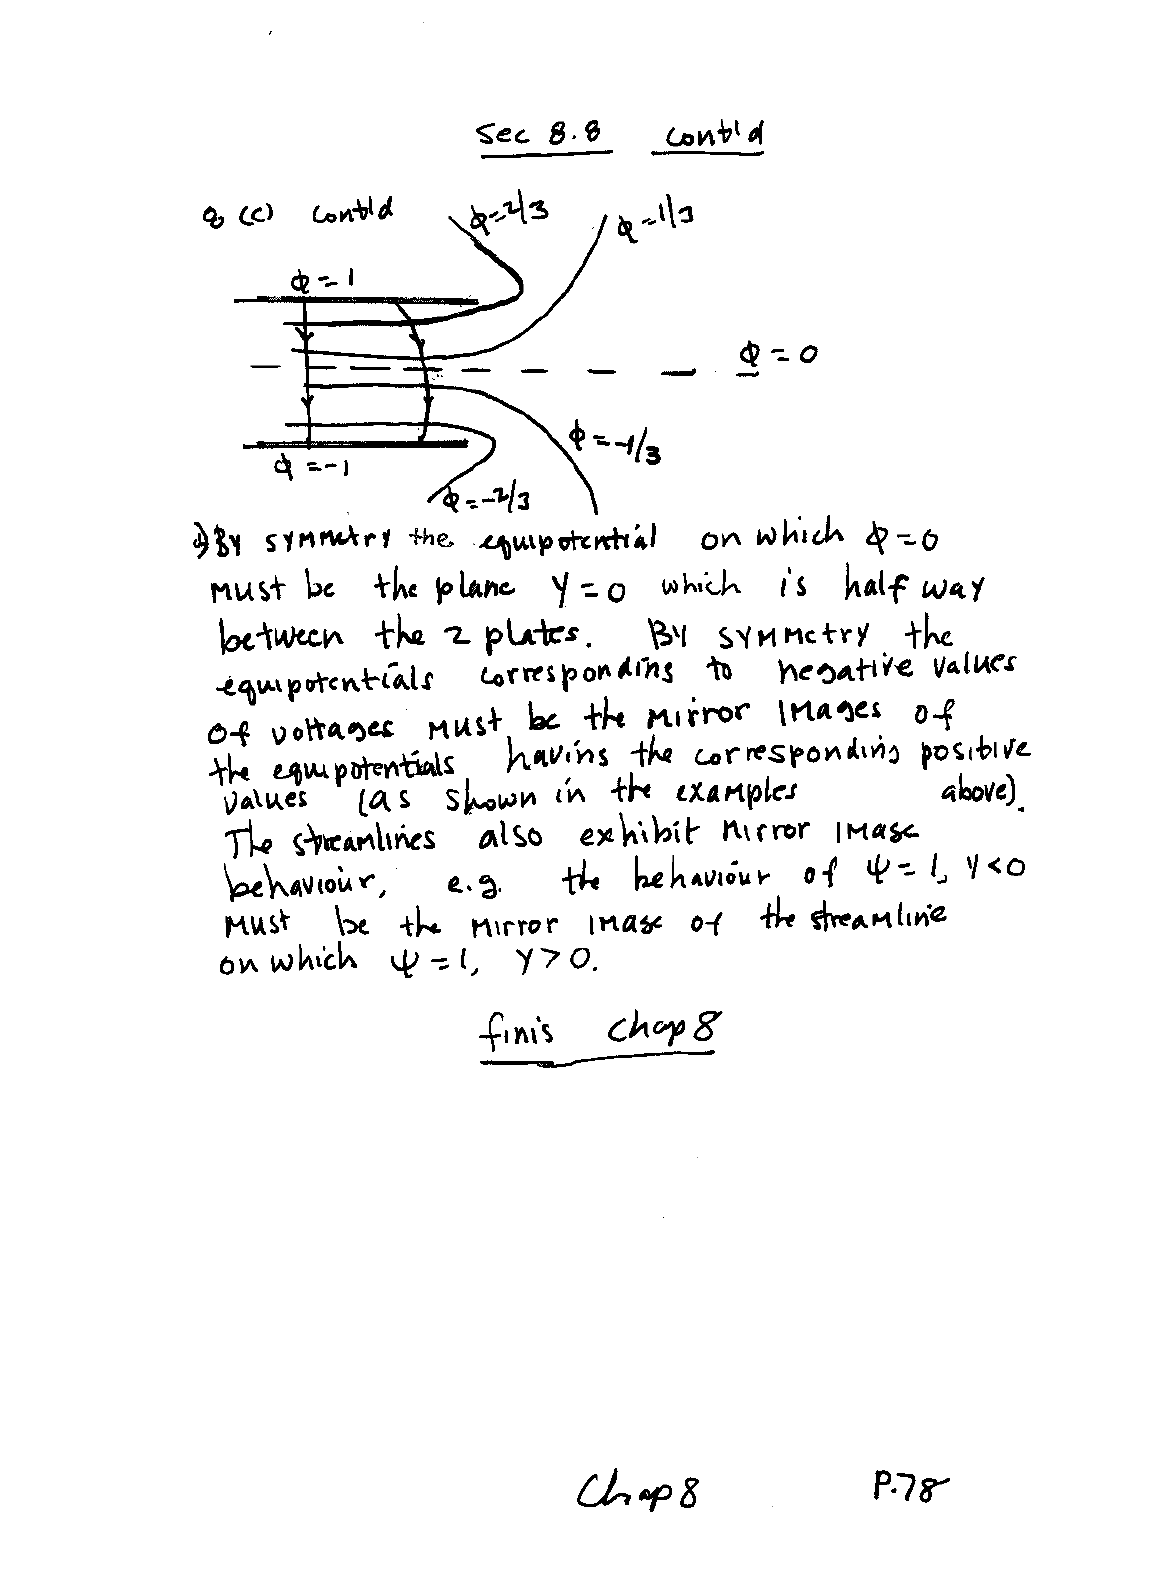 Sec 8.8 cont'd
8 (c) cont'd
ϕ=2/3
ϕ=1/3
ϕ=1
ϕ=0
ϕ=-1/3
ϕ=-1
ϕ=-2/3
By symmetry the equipotential on which ϕ=0
must be the plane Y=0 which is half way
between the 2 plates. By symmetry the
equipotentials corresponding to negative values
of voltages must be the mirror images of
the equipotentials having the corresponding positive
values (as shown in the examples above).
The streamlines also exhibit mirror image
behaviour, e.g. the behaviour of ψ=1, Y<0
must be the mirror image of the streamline
on which ψ=1, Y>0.
finis Chap 8
Chap 8 P.78